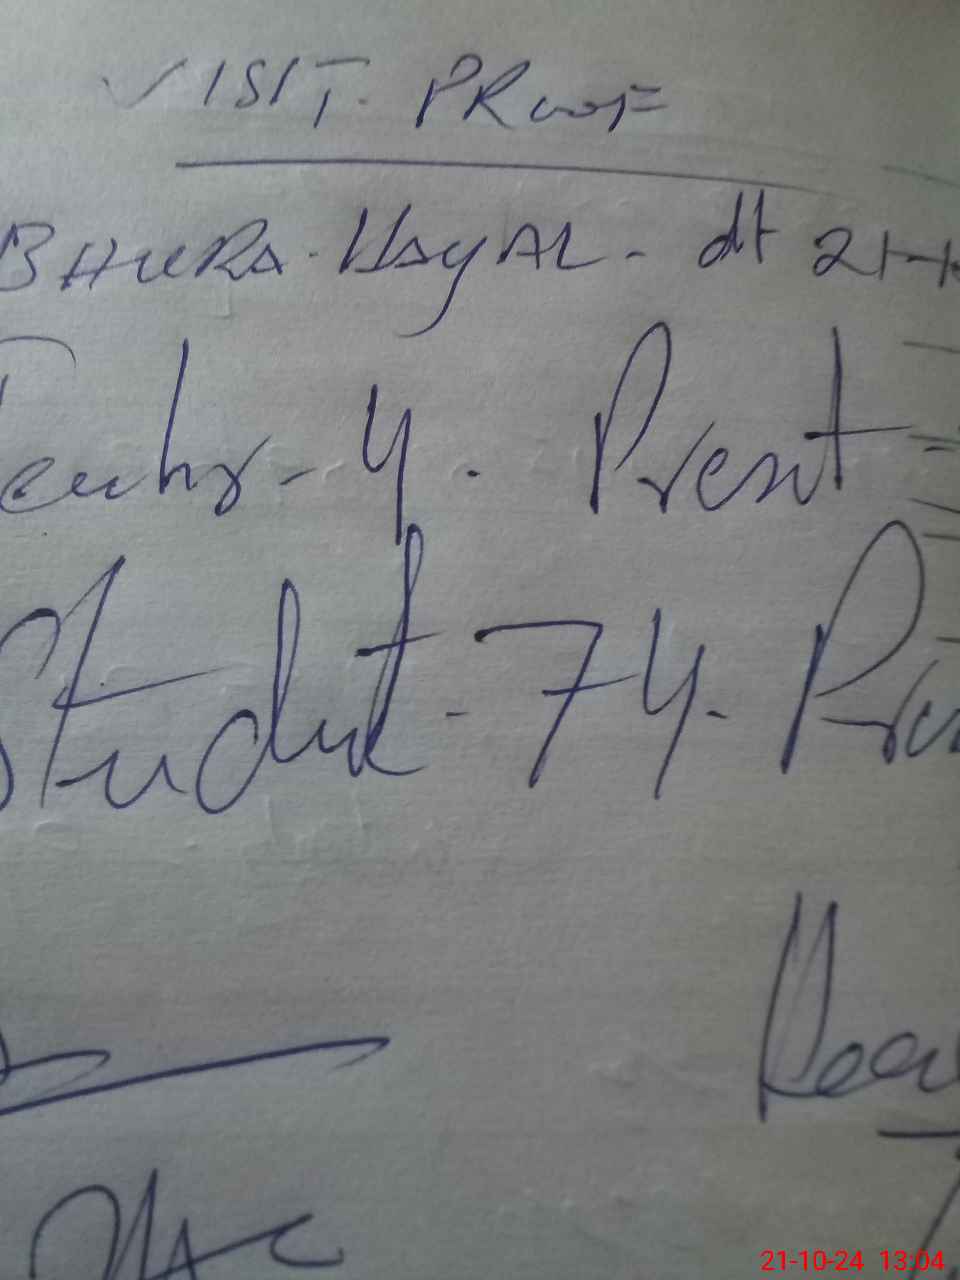 VISIT. PROOF
BHURA. HAYAL - dt 21-1
Teachr - 4. Present =
Student - 74. Pres
21-10-24 13:04